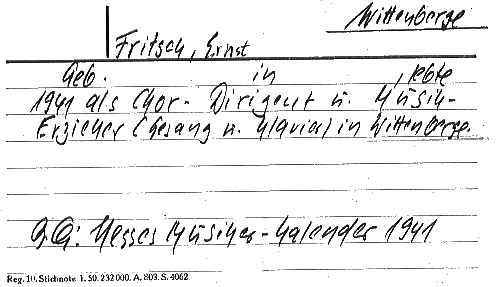 Wittenberge
Fritsch, Ernst
Geb. in , lebte
1941 als Chor-Dirigent u. Musik-
Erzieher (Gesang u. Klavier) in Wittenberge.
Hesses Musiker-Kalender 1941
Reg. 10. Stichnote 1. 50. 232000. A. 803. S. 4062